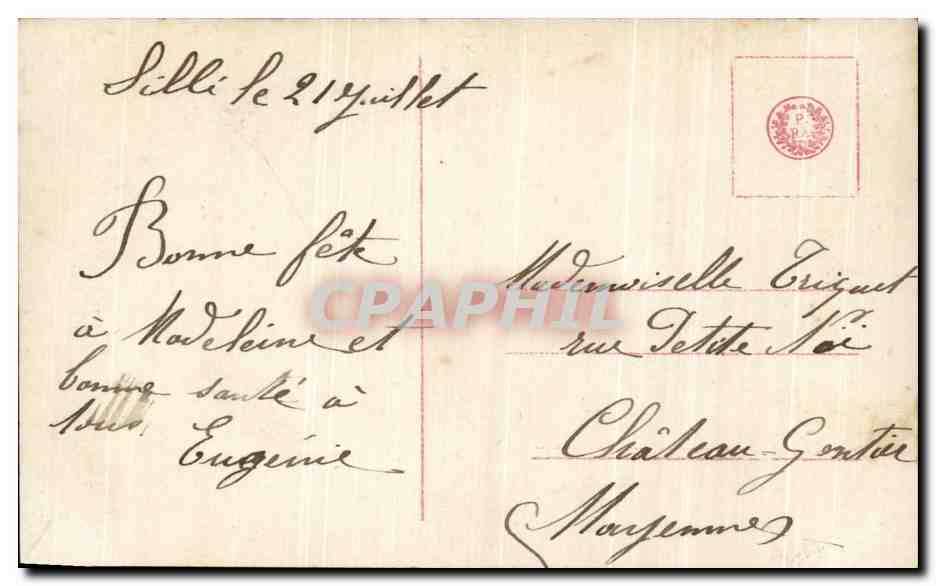 Sillé le 21 Juillet
Bonne fête
à Madeleine et
bonne santé à
tous
Eugénie
P.
Mademoiselle Triquet
rue Petite Noë
Château-Gontier
Mayenne
CPAPHIL